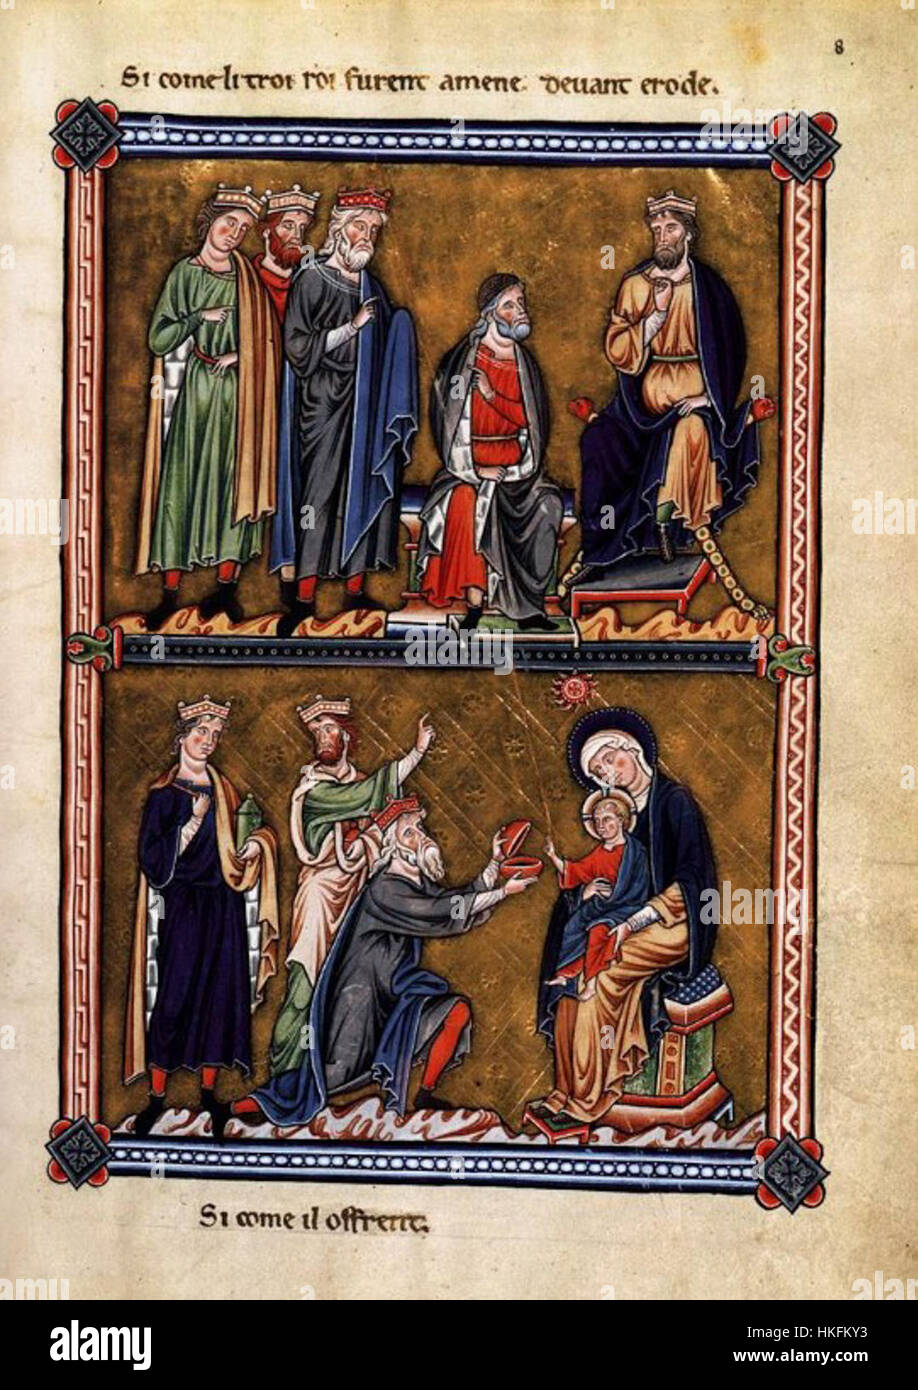 8
Si come li troi roi furent amene. devant erode.
Si come il offrent.
alamy
Image ID: HKFKY3
www.alamy.com